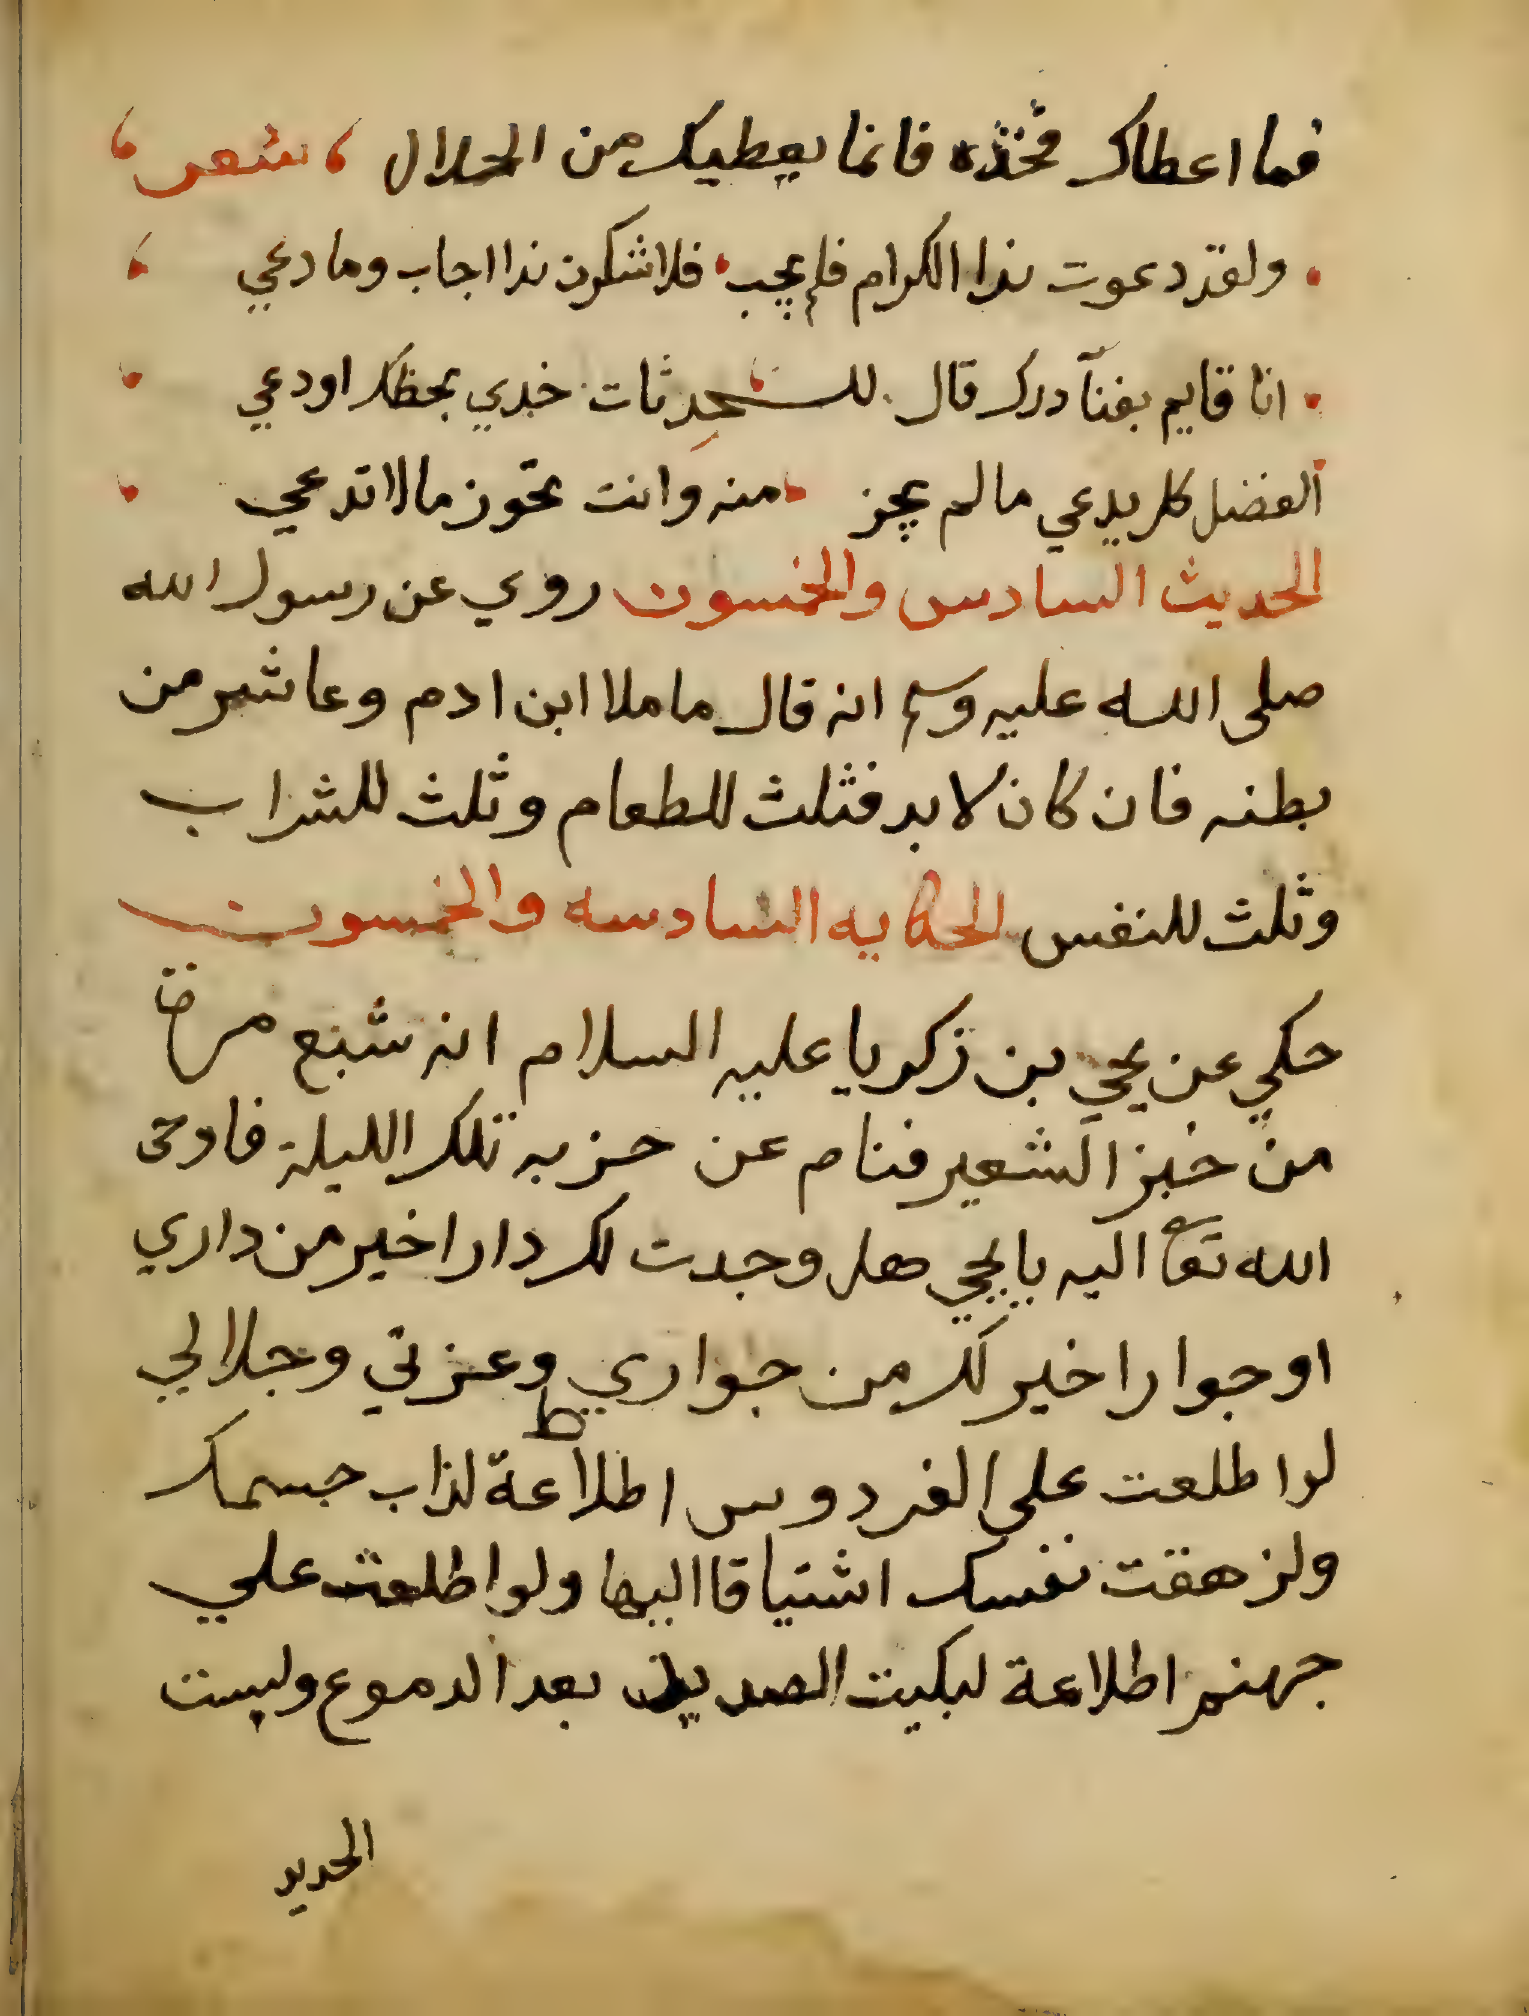 فما اعطاك فخذه فانما يعطيك من الحلال ، شعر ،
ولقد دعوت ندا الكرام فلم يجب فلاشكرن ندا اجاب وما دعي
انا قايم بفنآ درك قال للحدثات خدي بحظك اودعي
الفضل كل يدعي ما لم يحز منه وانت تحوز ما لا تدعي
الحديث السادس والخمسون روي عن رسول الله
صلى الله عليه وسلم انه قال ما ملا ابن ادم وعا شر من
بطنه فان كان لا بد فثلث للطعام وثلث للشراب
وثلث للنفس الحكايه السادسه والخمسون
حكي عن يحيي بن زكريا عليه السلام انه شبع مرة
من خبز الشعير فنام عن حزبه تلك الليلة فاوحى
الله تعا الیه يا يحيي هل وجدت لك دارا خير من داري
او جوارا خير لك من جواري وعزتي وجلالي
لو اطلعت على الفردوس اطلاعة لذاب جسمك
ولزهقت نفسك اشتياقا اليها ولو اطلعت علي
جهنم اطلاعة لبكيت الصديد بعد الدموع ولبست
الحديد